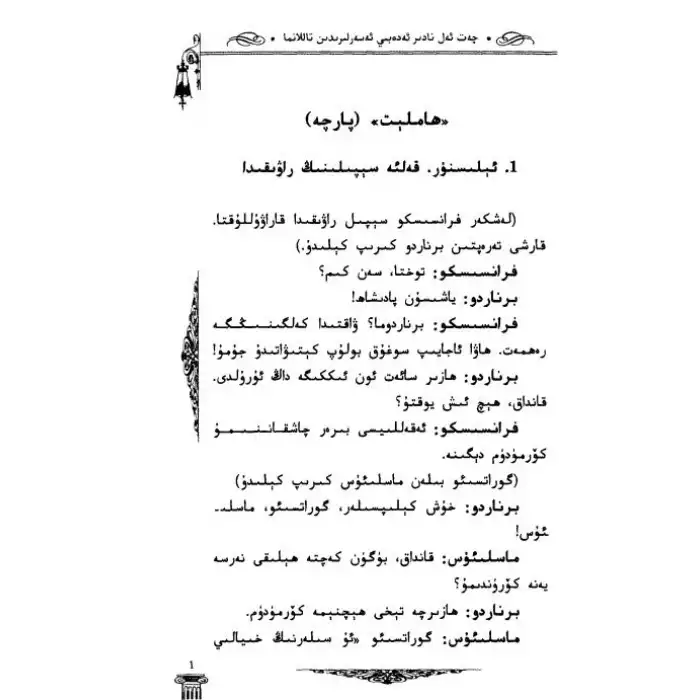 • چەت ئەل نادىر ئەدەبىي ئەسەرلىرىدىن تاللانما •
«ھاملېت» (پارچە)
1. ئېلىسنۇر. قەلئە سېپىلىنىڭ راۋىقىدا
(لەشكەر فرانسىسكو سېپىل راۋىقىدا قاراۋۇللۇقتا.
قارشى تەرەپتىن برناردو كىرىپ كېلىدۇ.)
فرانسىسكو: توختا، سەن كىم؟
برناردو: ياشىسۇن پادىشاھ!
فرانسىسكو: برناردوما؟ ۋاقتىدا كەلگىنىڭگە
رەھمەت. ھاۋا ئاجايىپ سوغۇق بولۇپ كېتىۋاتىدۇ جۇمۇ!
برناردو: ھازىر سائەت ئون ئىككىگە داڭ ئۇرۇلدى.
قانداق، ھېچ ئىش يوقتۇ؟
فرانسىسكو: ئەقەللىيىسى بىرەر چاشقاننىمۇ
كۆرمۈدۈم دېگىنە.
(گوراتسىئو بىلەن ماسلىئۇس كىرىپ كېلىدۇ)
برناردو: خۇش كېلىپسىلەر، گوراتسىئو، ماسلى-
ئۇس!
ماسلىئۇس: قانداق، بۈگۈن كەچتە ھېلىقى نەرسە
يەنە كۆرۈندىمۇ؟
برناردو: ھازىرچە تېخى ھېچنېمە كۆرمۈدۈم.
ماسلىئۇس: گوراتسىئو «ئۇ سىلەرنىڭ خىيالىي
1